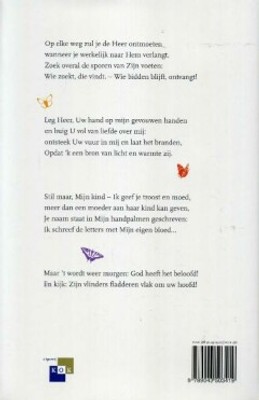 Op elke weg zul je de Heer ontmoeten,
wanneer je werkelijk naar Hem verlangt.
Zoek overal de sporen van Zijn voeten:
Wie zoekt, die vindt. – Wie bidden blijft, ontvangt!
Leg Heer, Uw hand op mijn gevouwen handen
en buig U vol van liefde over mij:
ontsteek Uw vuur in mij en laat het branden,
Opdat 'k een bron van licht en warmte zij.
Stil maar, Mijn kind – Ik geef je troost en moed,
meer dan een moeder aan haar kind kan geven,
Je naam staat in Mijn handpalmen geschreven:
Ik schreef de letters met Mijn eigen bloed...
Maar 't wordt weer morgen: God heeft het beloofd!
En kijk: Zijn vlinders fladderen vlak om uw hoofd!
KOK